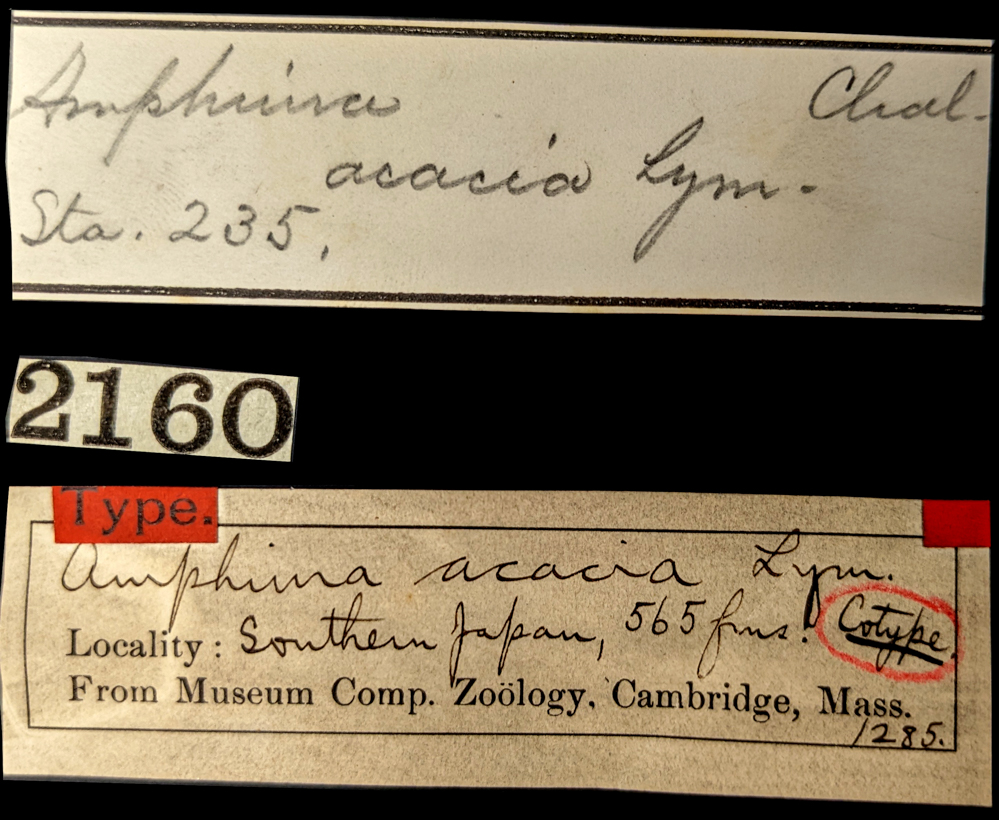 Amphiura Chal.
acacia Lym.
Sta. 235.
2160
Type.
Amphiura acacia Lym.
Locality: Southern Japan, 565 fms. Cotype.
From Museum Comp. Zoölogy, Cambridge, Mass.
1285.